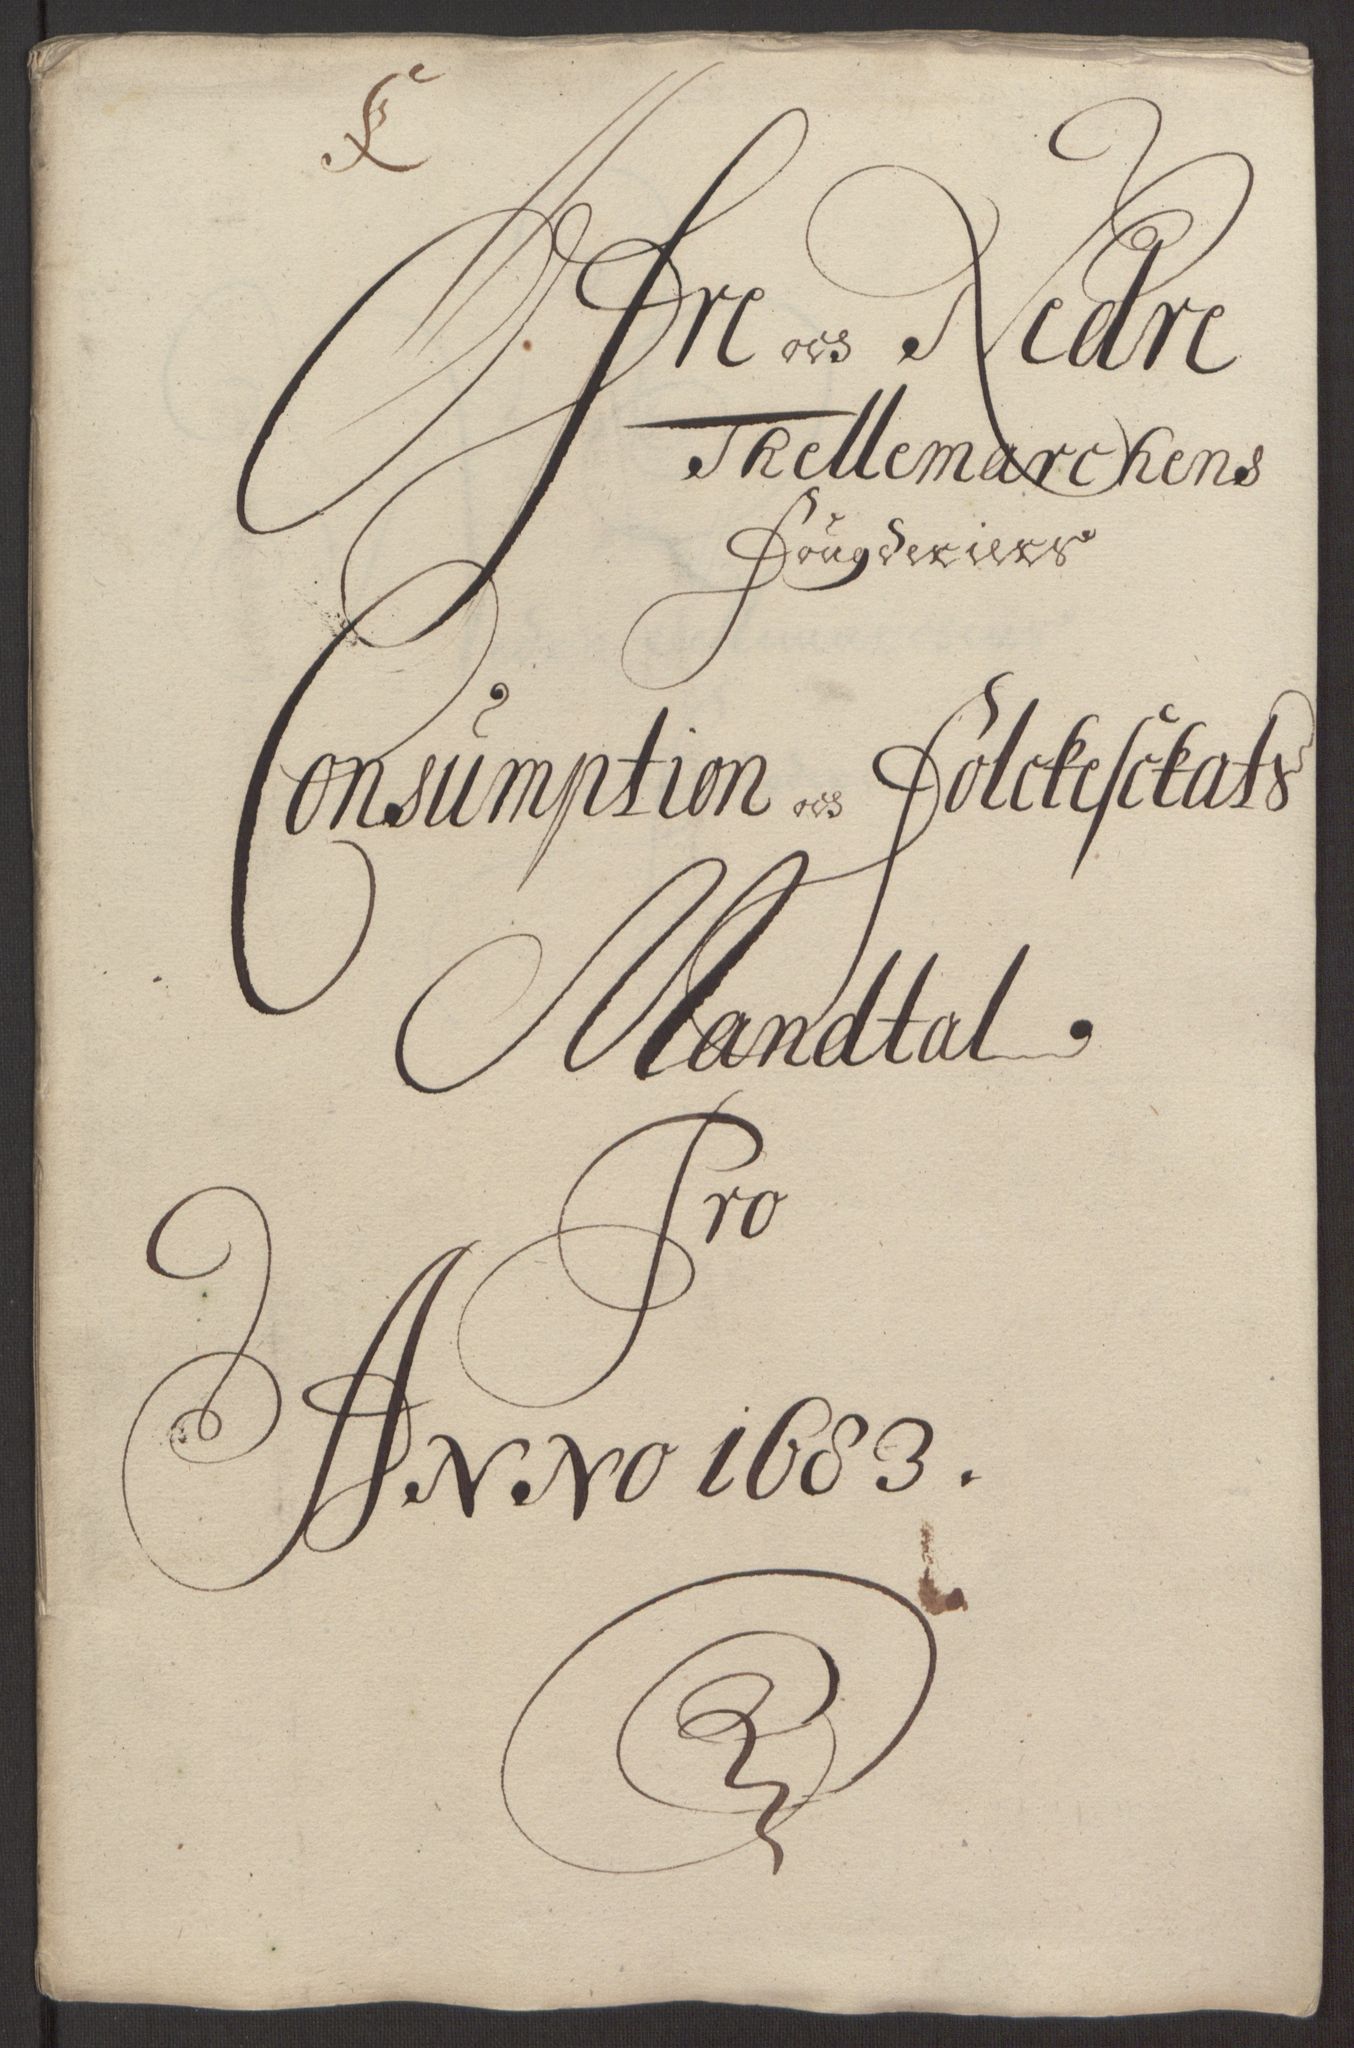 Øfre och Nedre
Thellemarckens
Fougderiers
Consumption och Folckesckats
Mandtal.
Pro
ANNO 1683.